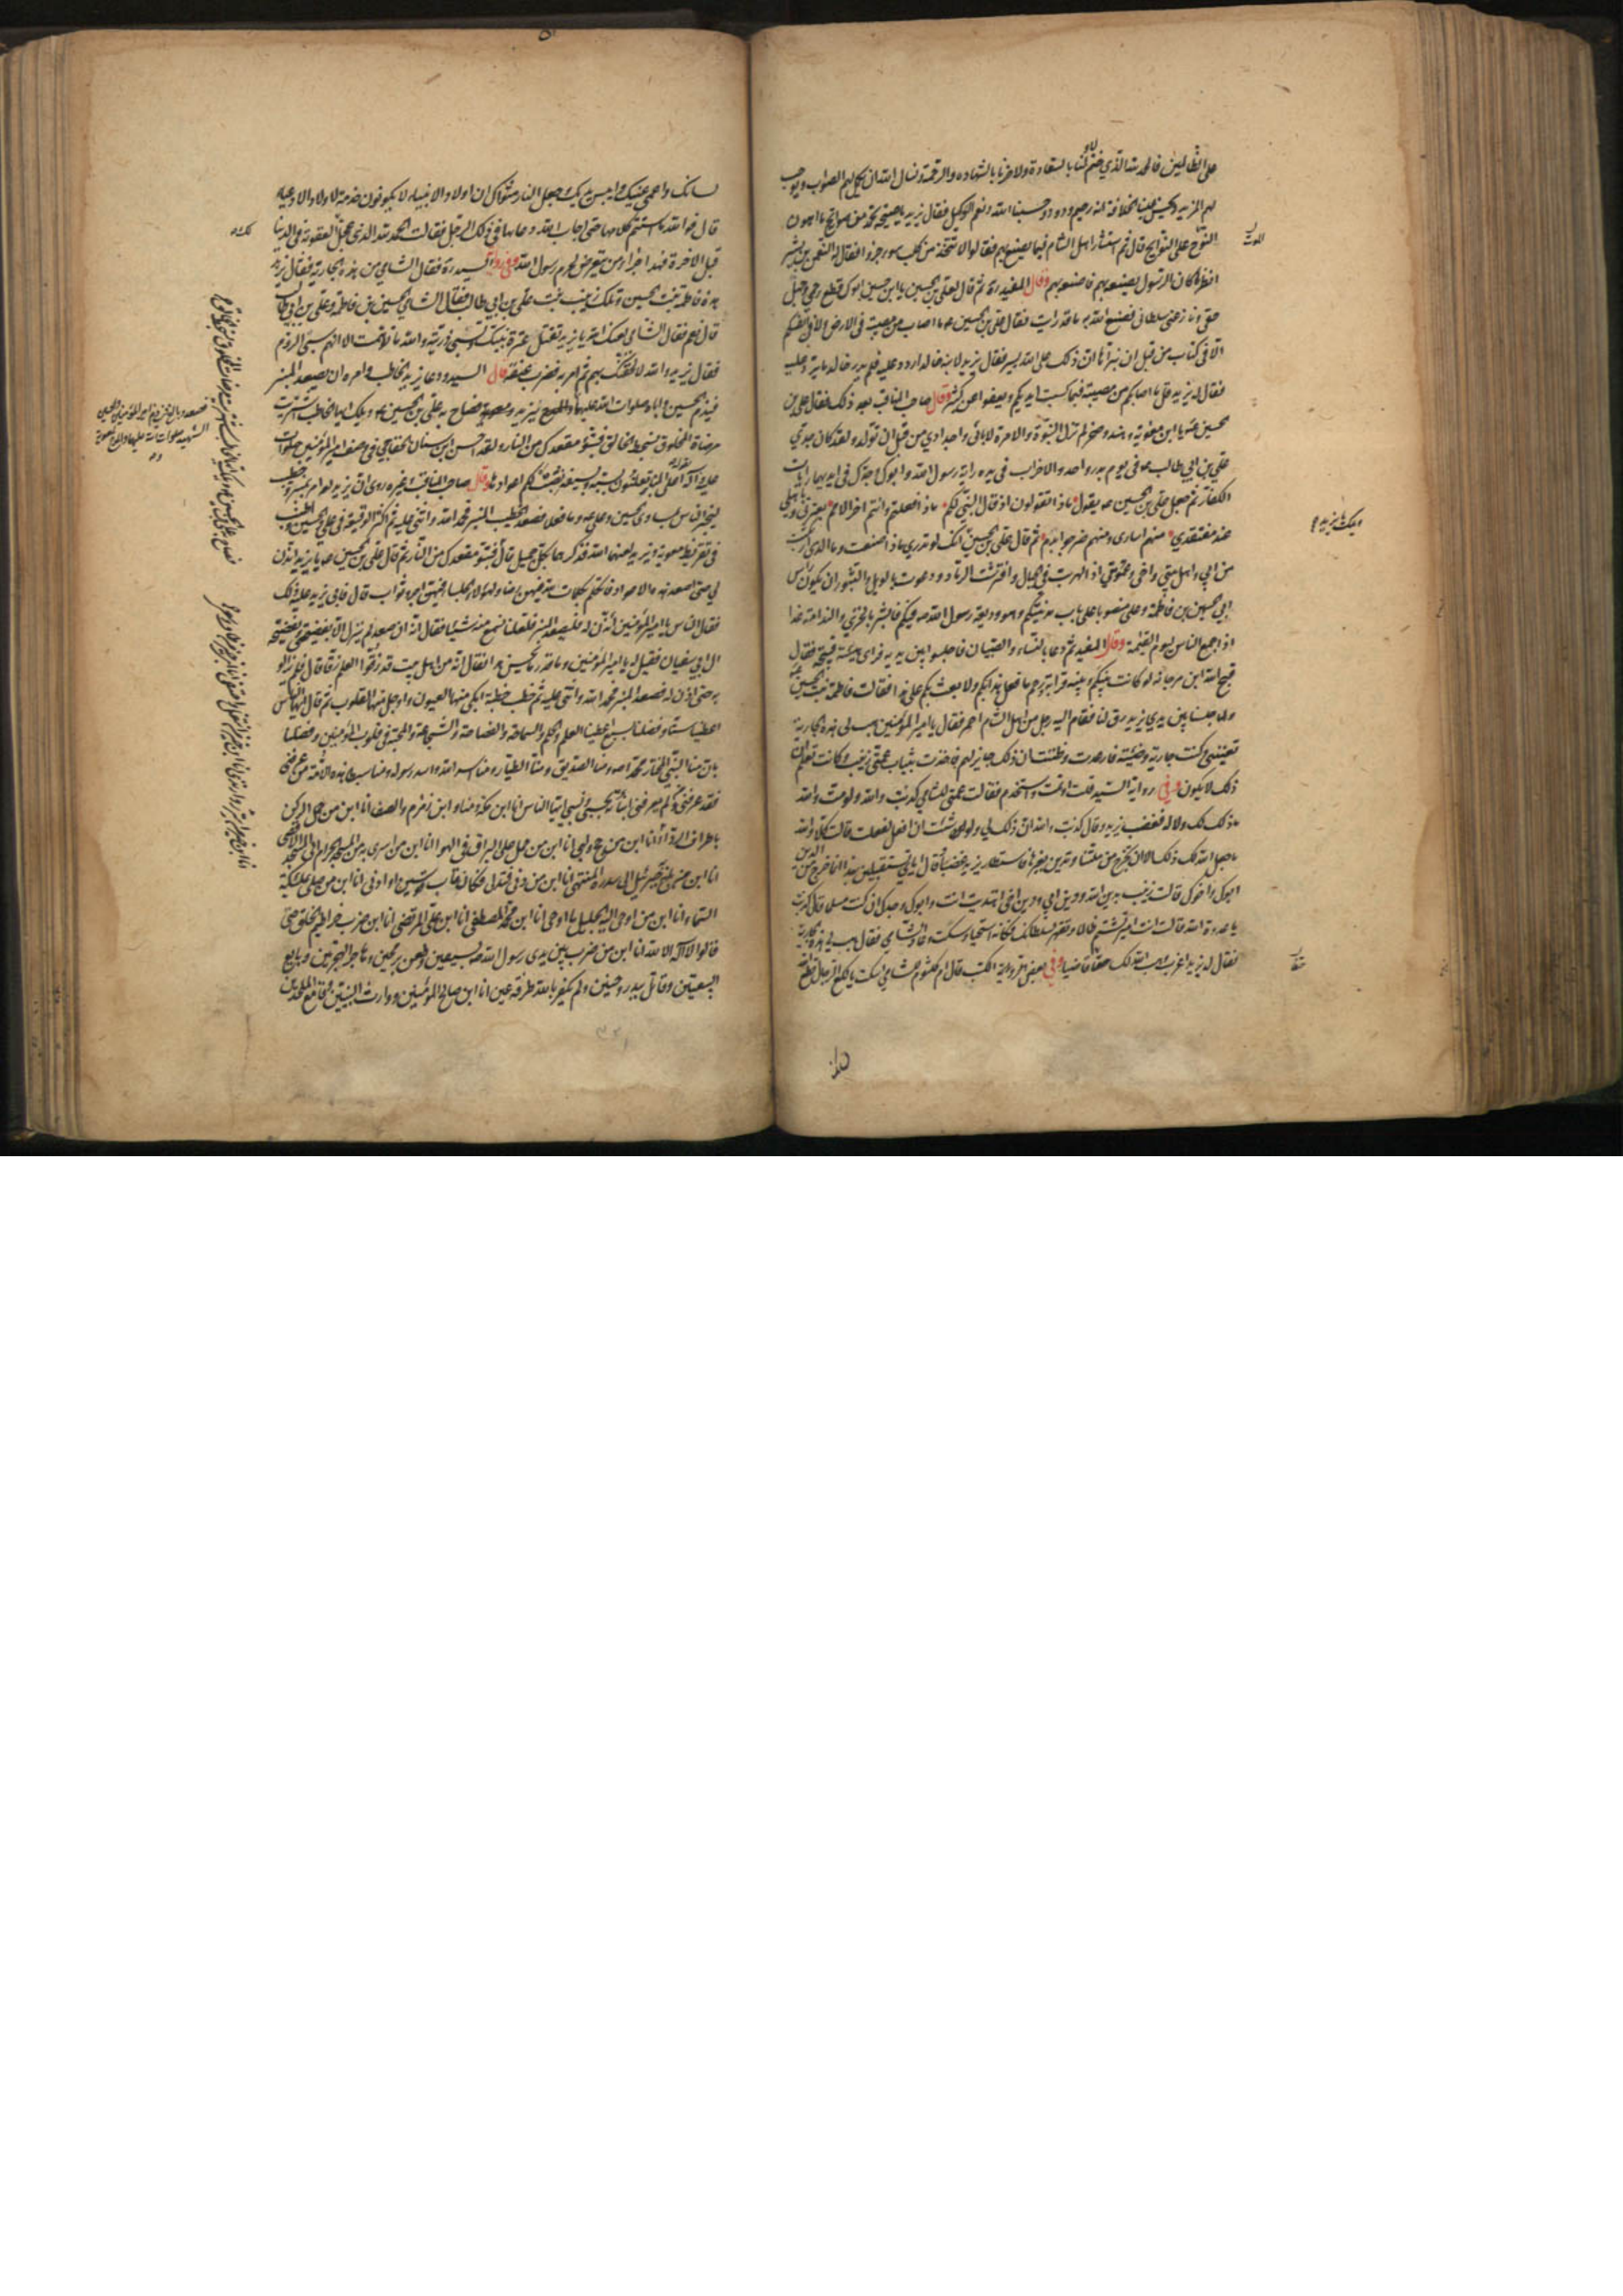 على الظالمين فالحمد لله الذي ختم لاولنا بالسعادة ولاخرنا بالشهادة والرحمة ونسال الله ان يكمل لهم الثواب ويوجب
لهم المزيد ويحسن علينا الخلافة انه رحيم ودود وحسبنا الله ونعم الوكيل فقال يزيد يا صيحة تحمد من صوائح ما اهون
النوح على النوائح قال ثم استشار اهل الشام فيما يصنع بهم فقالوا لا تتخذ من كلب سوء جروا فقال له النعمن بن بشير
انظر ما كان الرسول يصنعه بهم فاصنعه بهم وقال المفيد ره ثم قال لعلي بن الحسين يا ابن حسين ابوك قطع رحمي وجهل
حقي ونازعني سلطاني فصنع الله به ما قد رايت فقال علي بن الحسين ما اصاب من مصيبة في الارض ولا في انفسكم
الا في كتاب من قبل ان نبراها ان ذلك على الله يسير فقال يزيد لابنه خالد اردد عليه فلم يدر خالد ما يرد عليه
فقال له يزيد قل ما اصابكم من مصيبة فبما كسبت ايديكم ويعفو عن كثير وقال صاحب المناقب بعد ذلك فقال علي بن
الحسين يا ابن معوية وهند وصخر لم تزل النبوة والامرة لابائي واجدادي من قبل ان تولد ولقد كان جدي
علي بن ابي طالب في يوم بدر واحد والاحزاب في يده راية رسول الله وابوك وجدك في ايديهما رايات
الكفار ثم جعل علي بن الحسين يقول ماذا تقولون اذ قال النبي لكم ماذا فعلتم وانتم اخر الامم بعترتي وباهلي
عند مفتقدي منهم اسارى ومنهم ضرجوا بدم ثم قال علي بن الحسين انك لو تدري ماذا صنعت وما الذي ارتكبت
من ابي واهل بيتي واخي وعمومتي اذا لهربت في الجبال وافترشت الرماد ودعوت بالويل والثبور ان يكون راس
ابي الحسين بن فاطمة وعلي منصوبا على باب مدينتكم وهو وديعة رسول الله فيكم فابشر بالخزي والندامة غدا
اذا جمع الناس ليوم القيمة وقال المفيد ثم دعا بالنساء والصبيان فاجلسوا بين يديه فراى هيئة قبيحة فقال
قبح الله ابن مرجانة لو كانت بينكم وبينه قرابة ورحم ما فعل هذا بكم ولا بعث بكم على هذا فقالت فاطمة بنت الحسين
ولما جلسنا بين يدي يزيد رق لنا فقام اليه رجل من اهل الشام احمر فقال يا امير المؤمنين هب لي هذه الجارية
تعنيني وكنت جارية وضيئة فارعدت وظننت ان ذلك جايز لهم فاخذت بثياب عمتي زينب وكانت تعلم ان
ذلك لا يكون وفي رواية السيد قلت اوتمت واستخدم فقالت عمتي للشامي كذبت والله ولومت والله
ما ذلك لك ولا له فغضب يزيد وقال كذبت والله ان ذلك لي ولو شئت ان افعل لفعلت قالت كلا والله
ما جعل الله لك ذلك الا ان تخرج من ملتنا وتدين بغيرها فاستطار يزيد غضبا وقال اياي تستقبلين بهذا انما خرج من الدين
ابوك واخوك قالت زينب بدين الله ودين ابي ودين اخي اهتديت انت وابوك وجدك ان كنت مسلما قال كذبت
يا عدوة الله قالت انت امير تشتم ظالما وتقهر بسلطانك فكانه استحيا وسكت وعاد الشامي فقال هب لي هذه الجارية
فقال له يزيد اعزب وهب الله لك حتفا قاضيا وفي بعض الكتب قال ام كلثوم للشامي اسكت يا لكع الرجال قطع الله
لسانك واعمى عينيك وايبس يديك وجعل النار مثواك ان اولاد الانبياء لا يكونون خدمة لاولاد الادعياء
قال فوالله ما استتم كلامها حتى اجاب الله دعاءها في ذلك الرجل فقالت الحمد لله الذي عجل لك العقوبة في الدنيا
قبل الاخرة فهذا جزاء من يتعرض لحرم رسول الله وفي رواية السيد ره فقال الشامي من هذه الجارية فقال يزيد
هذه فاطمة بنت الحسين وتلك زينب بنت علي بن ابي طالب فقال الشامي الحسين بن فاطمة وعلي بن ابي طالب
قال نعم فقال الشامي لعنك الله يا يزيد تقتل عترة نبيك وتسبي ذريته والله ما توهمت الا انهم سبي الروم
فقال يزيد والله لالحقنك بهم ثم امر به فضرب عنقه قال السيد ودعا يزيد الخاطب وامره ان يصعد المنبر
فيذم الحسين واباه صلوات الله عليهما فصاح به علي بن الحسين ويلك ايها الخاطب اشتريت
مرضاة المخلوق بسخط الخالق فتبوء مقعدك من النار ولقد احسن ابن سنان الخفاجي في وصف امير المؤمنين صلوات
الله عليه وآله اعلى المنابر تعلنون بسبه وبسيفه نصبت لكم اعوادها وقال صاحب المناقب وغيره روي ان يزيد لعنه امر بمنبر وخطيب
ليخبر الناس بمساوي الحسين وعلي وما فعلا فصعد الخطيب المنبر فحمد الله واثنى عليه ثم اكثر الوقيعة في علي والحسين واطنب
في تقريظ معوية ويزيد لعنهما الله فذكرهما بكل جميل قال فتبوء مقعدك من النار ثم قال علي بن الحسين يا يزيد ائذن
لي حتى اصعد هذه الاعواد فاتكلم بكلمات لله فيهن رضا ولهؤلاء الجلساء فيهن اجر وثواب قال فابى يزيد عليه ذلك
فقال الناس يا امير المؤمنين ائذن له فليصعد المنبر فلعلنا نسمع منه شيئا فقال انه ان صعد لم ينزل الا بفضيحتي وبفضيحة
ال ابي سفيان فقيل له يا امير المؤمنين وما قدر ما يحسن هذا فقال انه من اهل بيت قد زقوا العلم زقا قال فلم يزالوا
به حتى اذن له فصعد المنبر فحمد الله واثنى عليه ثم خطب خطبة ابكى منها العيون واوجل منها القلوب ثم قال ايها الناس
اعطينا ستا وفضلنا بسبع اعطينا العلم والحلم والسماحة والفصاحة والشجاعة والمحبة في قلوب المؤمنين وفضلنا
بان منا النبي المختار محمدا ومنا الصديق ومنا الطيار ومنا اسد الله واسد رسوله ومنا سبطا هذه الامة من عرفني
فقد عرفني ومن لم يعرفني انباته بحسبي ونسبي ايها الناس انا ابن مكة ومنا وانا ابن زمزم والصفا انا ابن من حمل الركن
باطراف الردا انا ابن من حج ولبى انا ابن من حمل على البراق في الهوا انا ابن من اسري به من المسجد الحرام الى المسجد الاقصى
انا ابن من بلغ به جبرئيل الى سدرة المنتهى انا ابن من دنى فتدلى فكان قاب قوسين او ادنى انا ابن من صلى بملئكة
السماء انا ابن من اوحى اليه الجليل ما اوحى انا ابن محمد المصطفى انا ابن علي المرتضى انا ابن من ضرب خراطيم الخلق حتى
قالوا لا اله الا الله انا ابن من ضرب بين يدي رسول الله بسيفين وطعن برمحين وهاجر الهجرتين وبايع
البيعتين وقاتل ببدر وحنين ولم يكفر بالله طرفة عين انا ابن صالح المؤمنين ووارث النبيين وقامع الملحدين